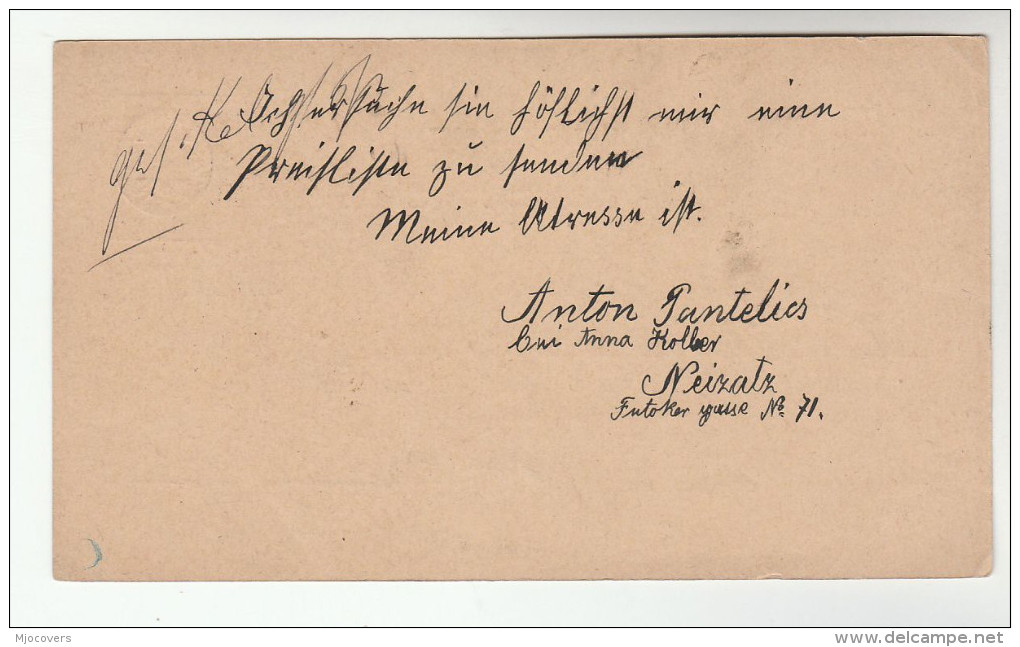 Ich ersuche sie höflichst mir eine
Preisliste zu senden
Meine Adresse ist.
Anton Pantelics
bei Anna Kolber
Neizatz
Futoker gasse № 71.
Mjocovers
www.delcampe.net